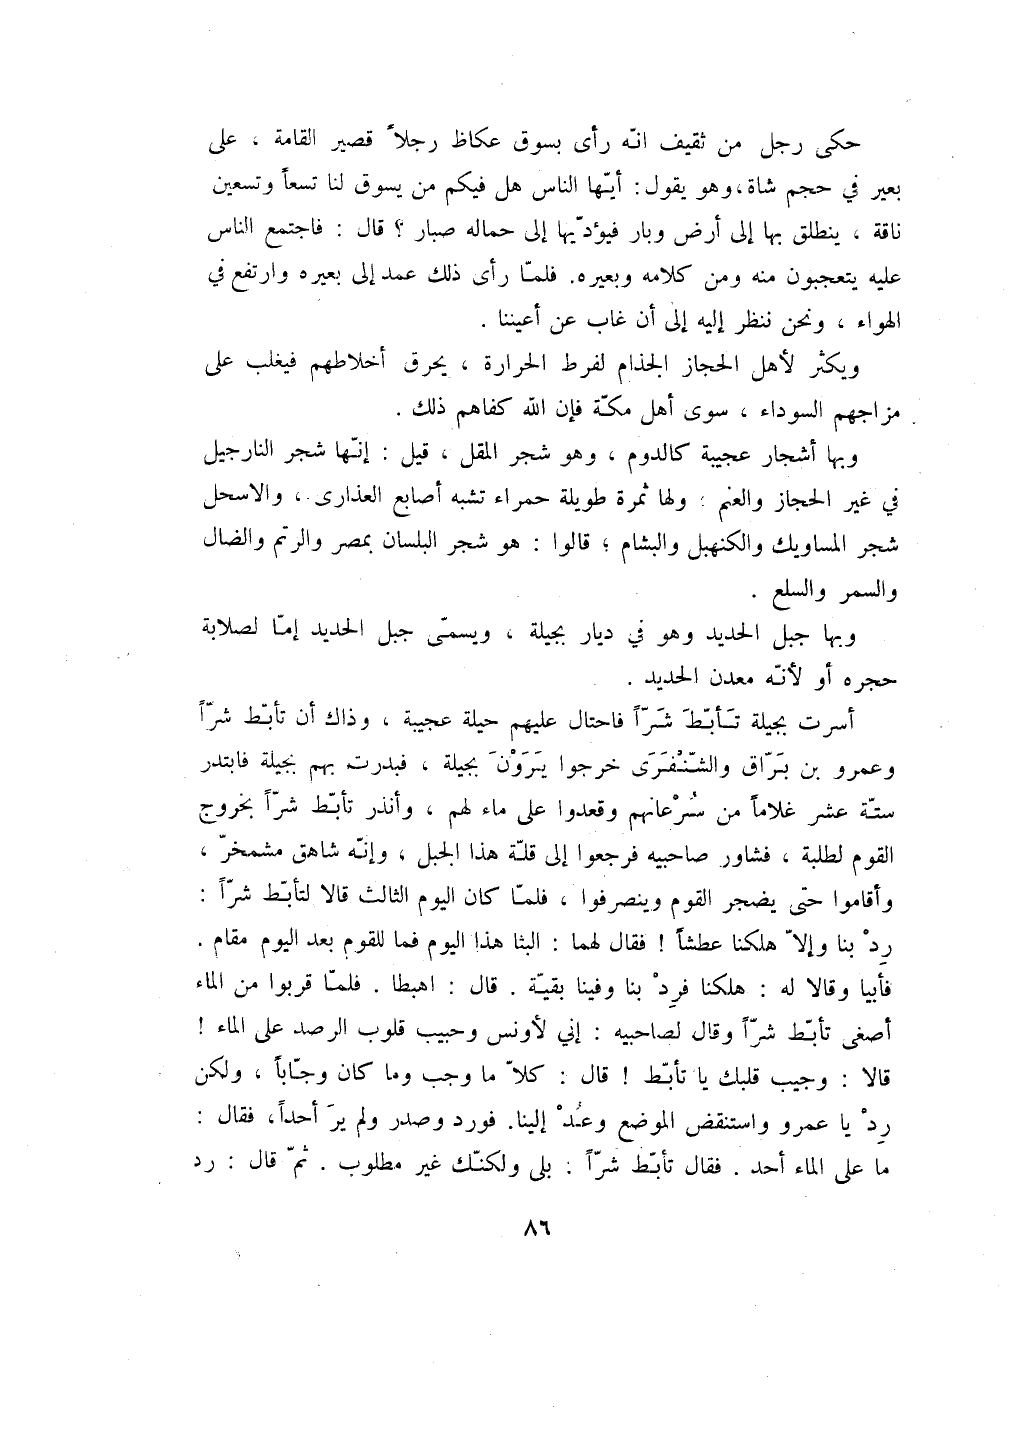 حكى رجل من ثقيف انّه رأى بسوق عكاظ رجلاً قصير القامة ، على
بعير في حجم شاة، وهو يقول : أيّها الناس هل فيكم من يسوق لنا تسعاً وتسعين
ناقة ، ينطلق بها إلى أرض وبار فيؤدّيها إلى حماله صبار ؟ قال : فاجتمع الناس
عليه يتعجبون منه ومن كلامه وبعيره. فلمّا رأى ذلك عمد إلى بعيره وارتفع في
الهواء ، ونحن ننظر إليه إلى أن غاب عن أعيننا .
ويكثر لأهل الحجاز الجذام لفرط الحرارة ، يحرق أخلاطهم فيغلب على
مزاجهم السوداء ، سوى أهل مكّة فإن الله كفاهم ذلك .
وبها أشجار عجيبة كالدوم ، وهو شجر المقل ، قيل : إنّها شجر النارجيل
في غير الحجاز والعنم ؛ ولها ثمرة طويلة حمراء تشبه أصابع العذارى ، والاسحل
شجر المساويك والكنهبل والبشام ؛ قالوا : هو شجر البلسان بمصر والرتم والضال
والسمر والسلع .
وبها جبل الحديد وهو في ديار بجيلة ، ويسمّى جبل الحديد إمّا لصلابة
حجره أو لأنّه معدن الحديد .
أسرت بجيلة تَأبّطَ شَرّاً فاحتال عليهم حيلة عجيبة ، وذاك أن تأبّط شرّاً
وعمرو بن بَرّاق والشّنْفَرَى خرجوا يَرَوْنَ بجيلة ، فبدرت بهم بجيلة فابتدر
ستّة عشر غلاماً من سُرْعانهم وقعدوا على ماء لهم ، وأنذر تأبّط شرّاً بخروج
القوم لطلبة ، فشاور صاحبيه فرجعوا إلى قلّة هذا الجبل ، وإنّه شاهق مشمخرّ ،
وأقاموا حتّى يضجر القوم وينصرفوا ، فلمّا كان اليوم الثالث قالا لتأبّط شرّاً :
رِدْ بنا وإلاّ هلكنا عطشاً ! فقال لهما : البثا هذا اليوم فما للقوم بعد اليوم مقام .
فأبيا وقالا له : هلكنا فرِدْ بنا وفينا بقيّة . قال : اهبطا . فلمّا قربوا من الماء
أصغى تأبّط شرّاً وقال لصاحبيه : إني لأونس وحبيب قلوب الرصد على الماء !
قالا : وجيب قلبك يا تأبّط ! قال : كلاّ ما وجب وما كان وجّاباً ، ولكن
رِدْ يا عمرو واستنقض الموضع وعُدْ إلينا. فورد وصدر ولم يرَ أحداً، فقال :
ما على الماء أحد . فقال تأبّط شرّاً : بلى ولكنّك غير مطلوب . ثمّ قال : رد
٨٦